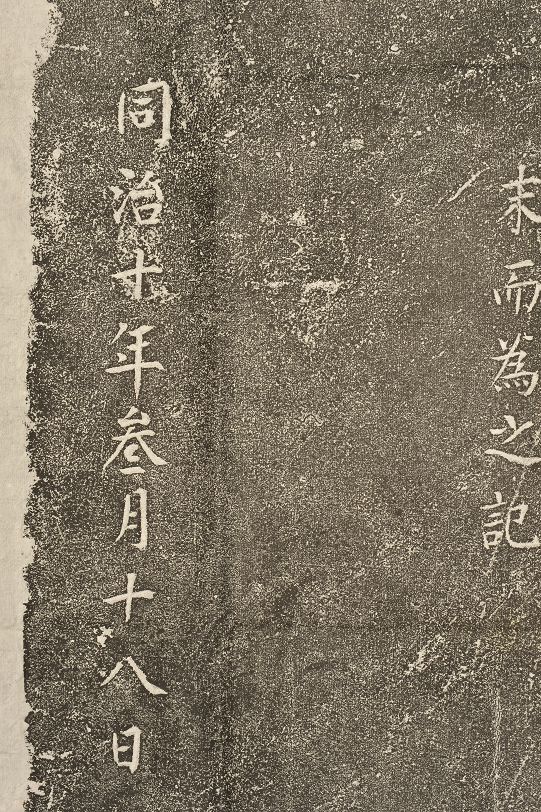 末而為之記
同治十年叁月十八日